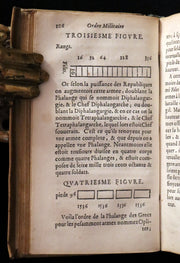 106 Ordre Militaire
TROISIESME FIGVRE.
Rangs.
16 32 64 128
Or selon la puissance des Republiques
on augmentoit cette armee, doublant la
Phalange qui se nommoit Diphalangar-
gie, & le Chef Diphalangarque, ou dou-
blant la Diphalangie, & en ce cas on la
nommoit Tetraphalangarchie, & le Chef
Tetraphalangarque, lequel estoit Chef
souuerain. C'est ce qu'ils tenoyent pour
vne armee complete, & que depuis on a
appellée vne Phalange. Neantmoins elle
estoit tousiours diuisée en quatre corps
comme quatre Phalanges, & estoit com-
posée de seize mille trois cens octante &
quatre soldats.
QVATRIESME FIGVRE.
pieds 96
1536 1536 1536 1536
Voila l'ordre de la Phalange des Grecs
pour les pesamment armez nommez Opli-
tes,